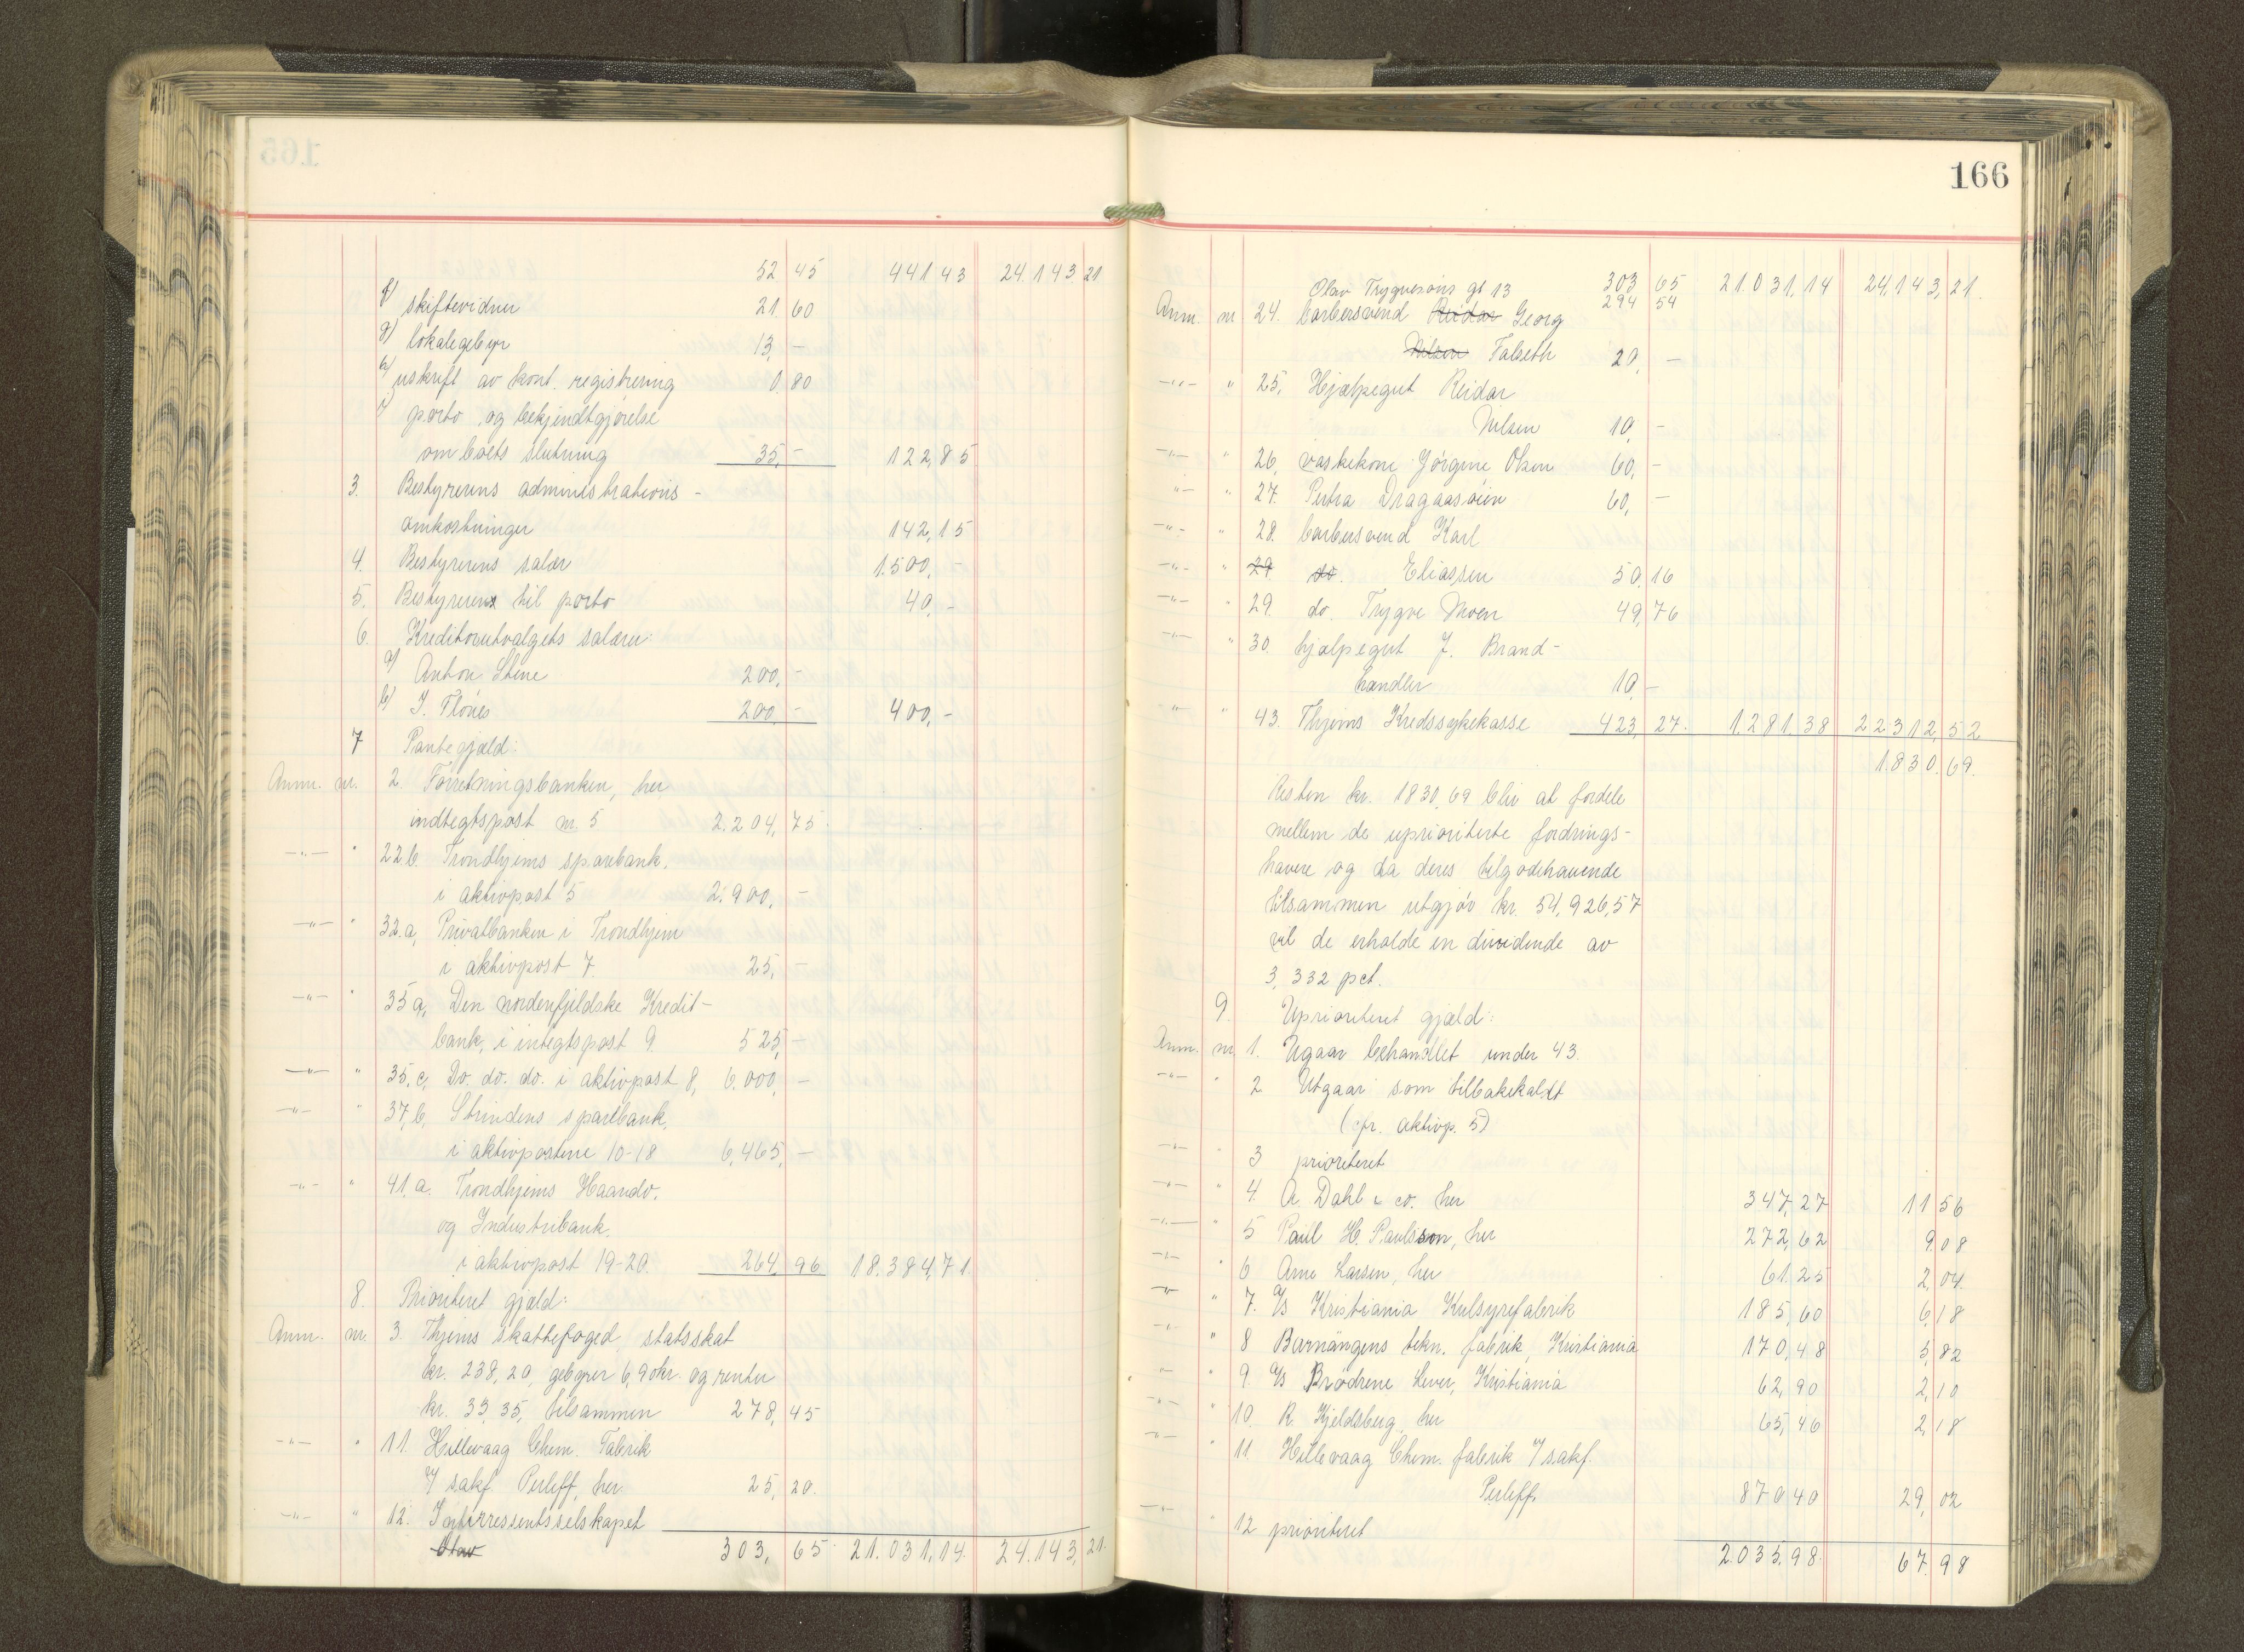 52 45 441 43 24.143 21
f) skiftevidner 21. 60
g) lokalegebyr 13, -
h) uskrift av kont. registrering 0. 80
i) porto og bekjendtgjørelse
om boets slutning 35, - 122,85
3. Bestyrerens administrations-
omkostninger 142,15
4. Bestyrerens salær 1.500, -
5. Bestyreren til porto 40, -
6. Kreditorutvalgets salærer:
a) Anton Stene 200, -
b) I. Flönes 200. - 400, -
7 Pantegjæld:
Anm. nr. 2. Forretningsbanken, her,
indtegtspost nr. 5 2.204, 75.
-"- " 22b Trondhjems sparebank,
i aktivpost 5 2.900, -
-"- " 32.a, Privatbanken i Trondhjem
i aktivpost 7. 25, -
-"- " 35 a, Den nordenfjeldske Kredit-
bank, i integtspost 9. 525, -
-"- " 35, c, Do. do. do. i aktivpost 8, 6.000, -
-"- " 37, b, Strindens sparebank,
i aktivpostene 10-18 6,465, -
-"- " 41, a. Trondhjems Haandv.
og Industribank.
i aktivpost 19-20. 264 96 18.384,71.
8. Prioritert gjæld:
Anm. nr. 3. Thjems skattefoged, statsskat
kr. 238,20, gebyrer 6,90 kr. og renter
kr. 33,35, tilsammen 278, 45
-"- " 11. Hillevaag Chem. Fabrik
v/ sakf. Perleff, her. 25, 20.
-"- " 12. Interressentsselskapet
Olav 303, 65 21.031,14. 24.143, 21.
166
Olav Trygvesøns gt 13 303 65 21.031,14 24,143,21.
294 54
Anm. nr 24. barbersvend Reidar Georg
Nilsen Falseth 20, -
-"- " 25, Hjælpegut Reidar
Nilsen 10, -
-"- " 26, vaskekone Jörgine Olsen 60, -
-"- " 27. Petra Dragaasöien 60, -
-"- " 28. barbersvend Karl
-"- " 29 do. Eliassen 50,16
-"- " 29. do. Trygve Moen 49,76
-"- " 30. hjælpegut J. Brand-
handler 10, -
" " 43. Thjems Kredssykekasse 423, 27. 1.281,38 22312,52
1.830,69.
Resten kr. 1830,69 bliv at fordele
mellem de uprioriterte fordrings-
havere og da deres tilgodehavende
tilsammen utgjør kr. 54,926,57
vil de erholde en dividende av
3,332 pct.
9. Uprioritert gjæld:
Anm. nr 1. Ugaar behandlet under 43.
-"- " 2 Utgaar som tilbakekaldt
(cfr. aktivp. 5)
-"- " 3 prioritert
-"- " 4. A. Dahl & co. her 347,27 11 56
-"- " 5 Paul H. Paulsson, her 272,62 9.08
-"- " 6 Arne Larsen, her 61.25 2,04.
-"- " 7. A/S Kristiania Kulsyrefabrik 185,60 6,18
-"- " 8 Barnängens tekn. fabrik, Kristiania 170,48 5,82
-"- " 9. A/S Brödrene Lever, Kristiania 62,90 2,10
-"- " 10. R. Kjeldsberg, her 65,46 2,18
-"- " 11. Hillevaag Chem. fabrik v/ sakf.
Perleff. 870 40 29,02
-"- " 12 prioritert
2.035,98. 67.98